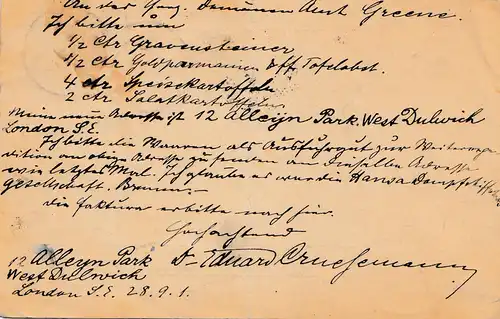 An das Hzg. Domänen Amt Greene.
Ich bitte um
1/2 Ctr Gravensteiner
1/2 Ctr Goldparmainen Eff Tafelobst.
4 Ctr Speisekartoffeln
2 Ctr Salatkartoffeln
Meine neue Adresse ist 12 Alleyn Park. West Dulwich
London S.E.
Ich bitte die Waaren als Ausfuhrgut zur Weiterexpe
dition an obige Adresse zu senden an dieselbe Adresse
wie letztes Mal. Ich glaube es war die Hansa Dampfschiffahrts
gesellschaft. Bremen.
die Faktura erbitte nach hier.
Hochachtend
12 Alleyn Park Dr Eduard Cruesemann
West Dulwich
London S.E. 28.9.1.